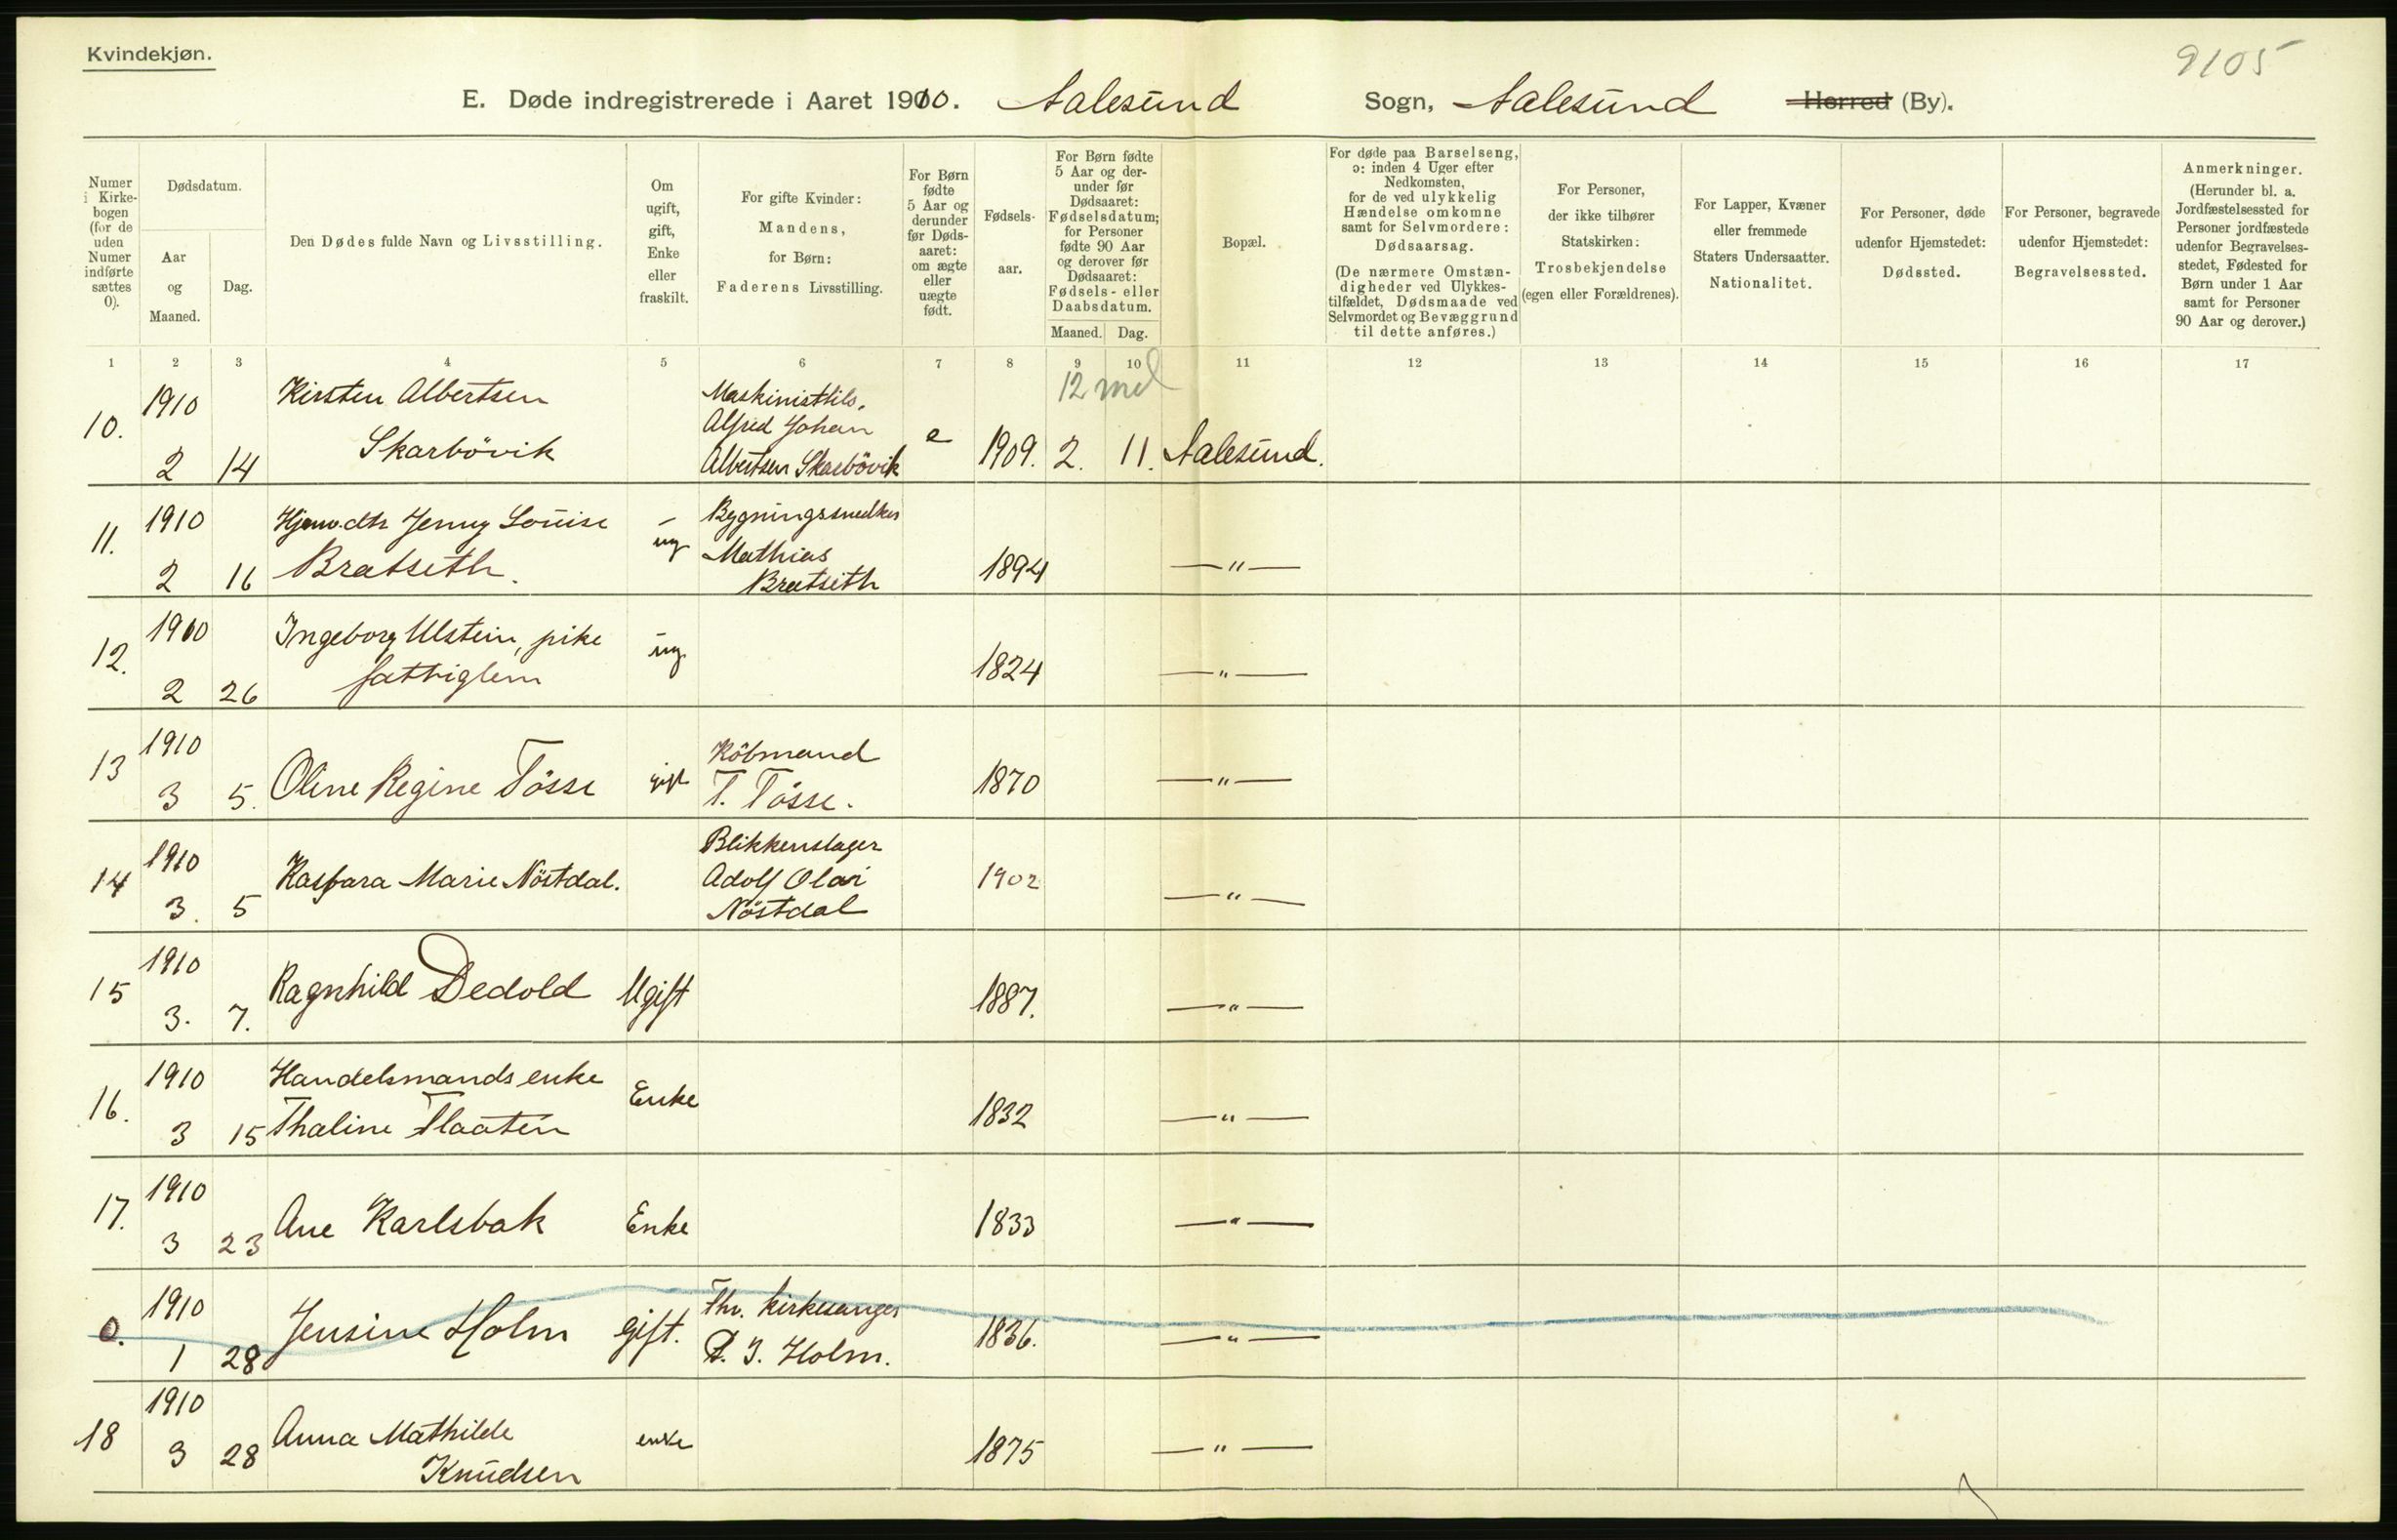 Kvindekjøn.
9105
E. Døde indregistrerede i Aaret 1910. Aalesund Sogn, Aalesund Herred (By).
Numer i Kirkebogen (for de uden Numer indførte sættes 0).
Dødsdatum.
Aar og Maaned.
Dag.
Den Dødes fulde Navn og Livsstilling.
Om ugift, gift, Enke eller fraskilt.
For gifte Kvinder: Mandens, for Børn: Faderens Livsstilling.
For Børn fødte 5 Aar og derunder før Dødsaaret: om ægte eller uægte født.
Fødselsaar.
For Børn fødte 5 Aar og derunder før Dødsaaret: Fødselsdatum; for Personer fødte 90 Aar og derover før Dødsaaret: Fødsels- eller Daabsdatum.
Maaned. Dag.
Bopæl.
For døde paa Barselseng, ɔ: inden 4 Uger efter Nedkomsten, for de ved ulykkelig Hændelse omkomne samt for Selvmordere: Dødsaarsag.
(De nærmere Omstændigheder ved Ulykkestilfældet, Dødsmaade ved Selvmordet og Bevæggrund til dette anføres.)
For Personer, der ikke tilhører Statskirken: Trosbekjendelse (egen eller Forældrenes).
For Lapper, Kvæner eller fremmede Staters Undersaatter. Nationalitet.
For Personer, døde udenfor Hjemstedet: Dødssted.
For Personer, begravede udenfor Hjemstedet: Begravelsessted.
Anmerkninger. (Herunder bl. a. Jordfæstelsessted for Personer jordfæstede udenfor Begravelsesstedet, Fødested for Børn under 1 Aar samt for Personer 90 Aar og derover.)
1 2 3 4 5 6 7 8 9 10 11 12 13 14 15 16 17
12 md
10. 1910 2 14 Kirsten Albertsen Skarbövik Maskinisttils. Alfred Johan Albertsen Skarbövik e 1909. 2. 11. Aalesund.
11. 1910 2 16 Hjemv. dtr Jenny Louise Bratseth. ug Bygningssnedker Mathias Bratseth 1894 — " —
12. 1910 2 26 Ingeborg Ulstein, pike fattiglem ug 1824 — " —
13 1910 3 5. Oline Regine Tösse gift Köbmand T. Tösse. 1870 — " —
14 1910 3. 5 Kaspara Marie Nöstdal. Blikkenslager Adolf Olai Nöstdal 1902 — " —
15 1910 3. 7. Ragnhild Dedold Ugift 1887. — " —
16. 1910 3 15 Handelsmands enke Thaline Flaaten Enke 1832 — " —
17. 1910 3 23 Ane Karlsbak Enke 1833 — " —
0. 1910 1 28 Jensine Holm gift. Fhv. Kirkesanger P. J. Holm. 1836. — " —
18 1910 3 28 Anna Mathilde Knudsen enke 1875 — " —